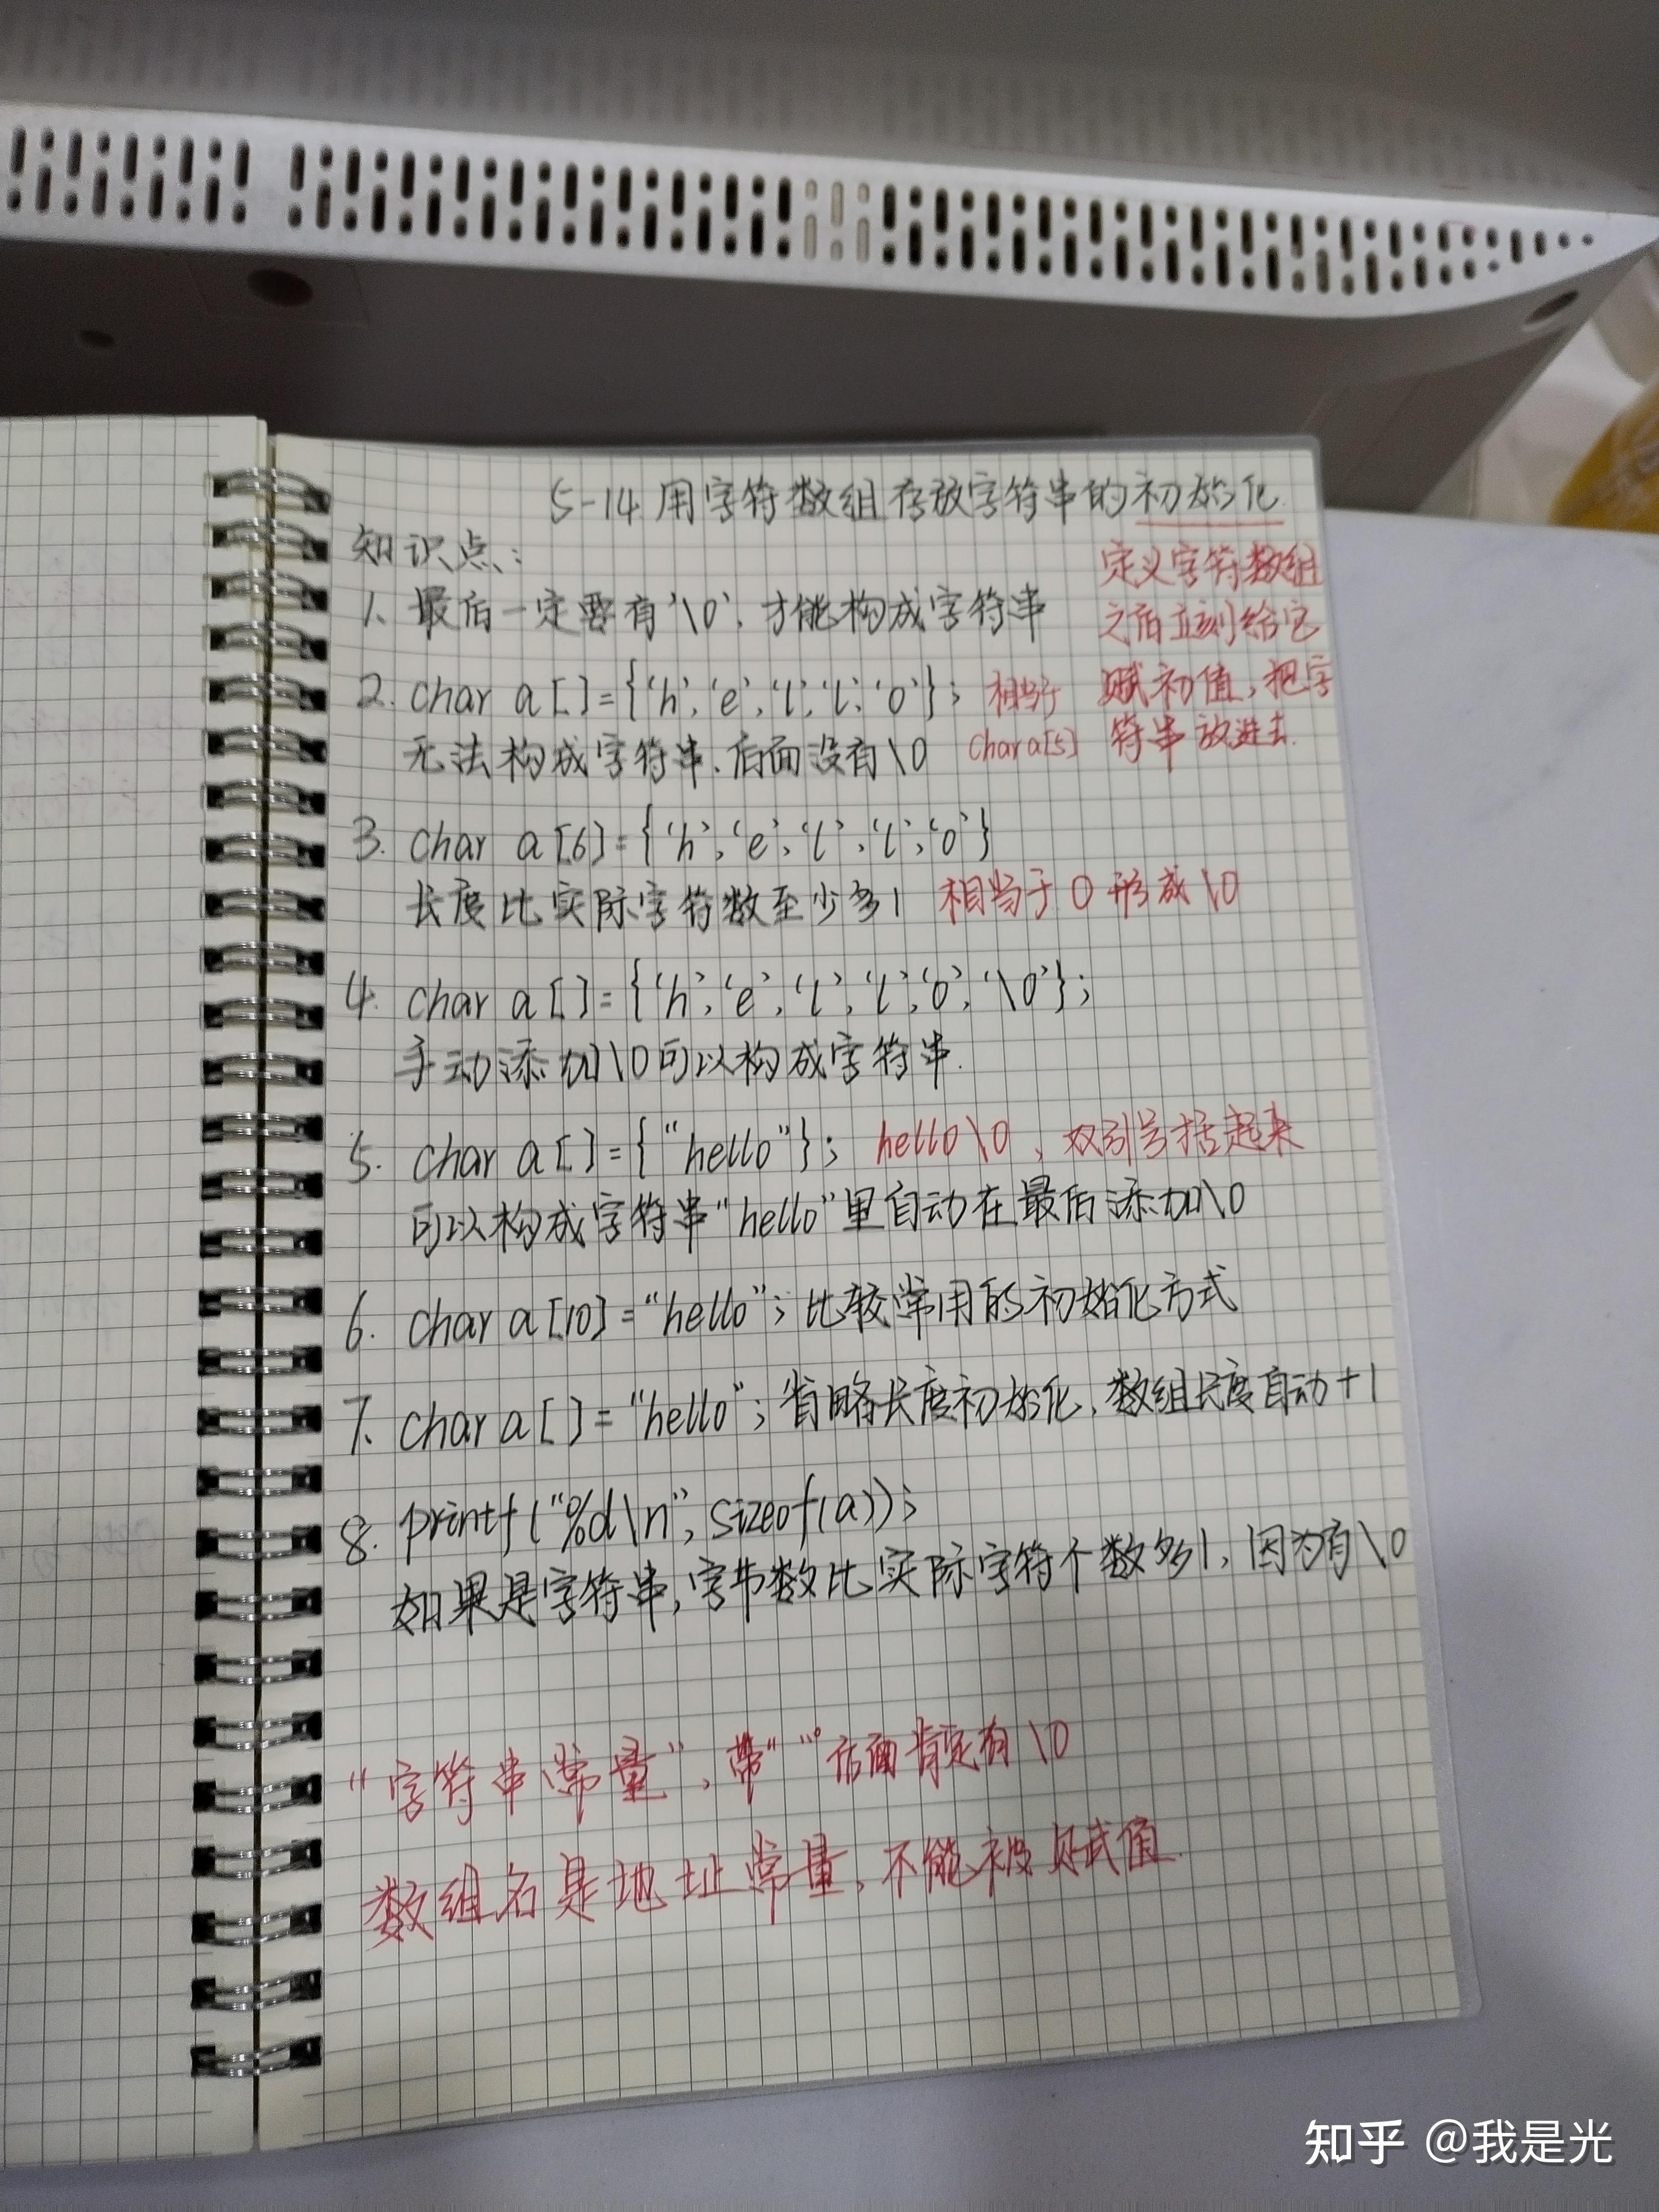 5-14 用字符数组存放字符串的初始化
知识点:
定义字符数组
之后立刻给它
赋初值,把字
符串放进去.
1、最后一定要有'\0',才能构成字符串
2. char a[]={'h','e','l','l','o'}; 相当于
char a[5]
无法构成字符串.后面没有\0
3. char a[6]={'h','e','l','l','o'}
长度比实际字符数至少多1 相当于0 形成\0
4. char a[]={'h','e','l','l','o','\0'};
手动添加\0可以构成字符串.
5. char a[]={"hello"}; hello\0,双引号括起来
可以构成字符串"hello"里自动在最后添加\0
6. char a[10]="hello";比较常用的初始化方式
7. char a[]="hello";省略长度初始化,数组长度自动+1
8. printf("%d\n",sizeof(a));
如果是字符串,字节数比实际字符个数多1,因为有\0
"字符串常量",带" "后面肯定有\0
数组名是地址常量,不能被赋值.
知乎 @我是光